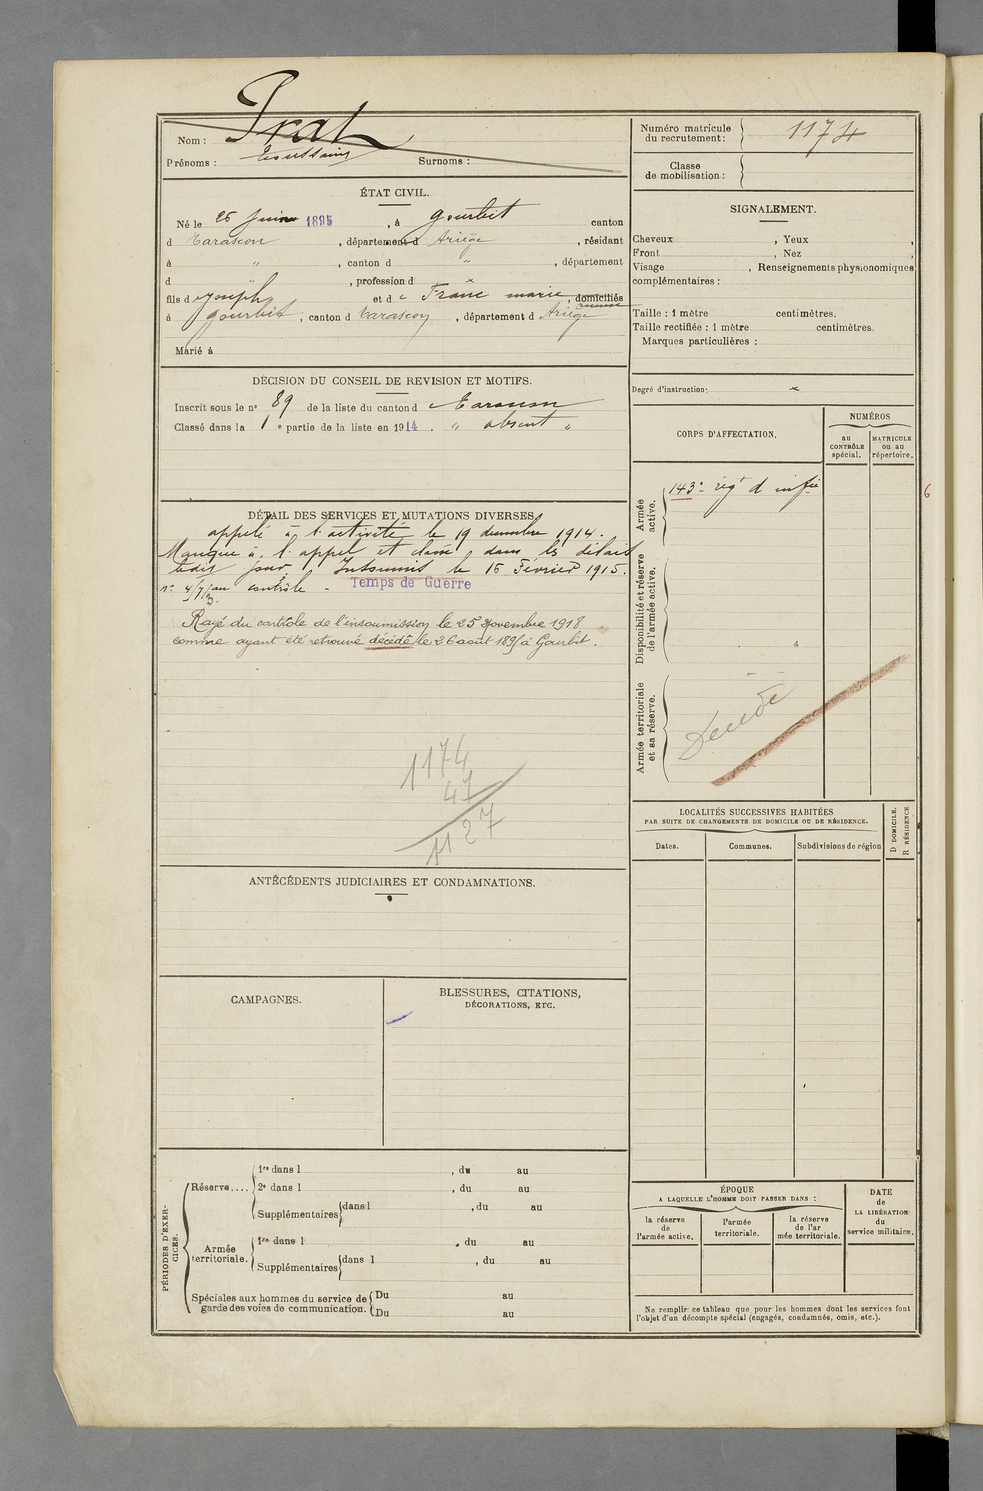 Nom : Prat
Prénoms : Toussaint Surnoms :
Numéro matricule du recrutement : 1174
Classe de mobilisation :
ÉTAT CIVIL.
Né le 25 Juin 1895, à Gourbit canton
d Tarascon, département d Ariège, résidant
à ", canton d ", département
d ", profession d x
fils d Joseph et de Franc marie, domiciliés
à Gourbit, canton d Tarascon, département d Ariège
Marié à
SIGNALEMENT.
Cheveux , Yeux ,
Front , Nez ,
Visage , Renseignements physionomiques
complémentaires :
Taille : 1 mètre centimètres.
Taille rectifiée : 1 mètre centimètres.
Marques particulières :
Degré d'instruction: x
DÉCISION DU CONSEIL DE REVISION ET MOTIFS.
Inscrit sous le n° 89 de la liste du canton d Tarascon
Classé dans la 1e partie de la liste en 1914. " absent "
CORPS D'AFFECTATION.
NUMÉROS
au CONTRÔLE spécial.
MATRICULE ou au répertoire.
Armée active.
143e régt d'infie
6
Disponibilité et réserve de l'armée active.
Armée territoriale et sa réserve.
Décédé
DÉTAIL DES SERVICES ET MUTATIONS DIVERSES.
appelé à l'activité le 19 décembre 1914.
Manque à l'appel et classé dans les délais
Insoumis le 15 Février 1915.
au contrôle - Temps de Guerre
Rayé du contrôle de l'insoumission le 25 Novembre 1918
comme ayant été retrouvé décédé le 26 août 1895 à Gourbit.
1174
47
1127
LOCALITÉS SUCCESSIVES HABITÉES
PAR SUITE DE CHANGEMENTS DE DOMICILE OU DE RÉSIDENCE.
D DOMICILE.
R RÉSIDENCE
Dates. Communes. Subdivisions de région
ANTÉCÉDENTS JUDICIAIRES ET CONDAMNATIONS.
CAMPAGNES.
BLESSURES, CITATIONS,
DÉCORATIONS, ETC.
PÉRIODES D'EXERCICES.
Réserve.... 1re dans l , du au
2e dans l , du au
Supplémentaires dans l , du au
Armée territoriale. 1re dans l , du au
Supplémentaires dans l , du au
Spéciales aux hommes du service de Du au
garde des voies de communication. Du au
ÉPOQUE
A LAQUELLE L'HOMME DOIT PASSER DANS :
la réserve de l'armée active.
l'armée territoriale.
la réserve de l'armée territoriale.
DATE de LA LIBÉRATION du service militaire.
Ne remplir ce tableau que pour les hommes dont les services font
l'objet d'un décompte spécial (engagés, condamnés, omis, etc.).